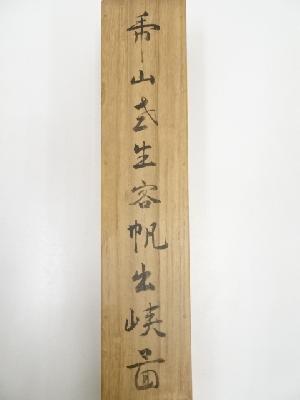 山先生客帆出峡図